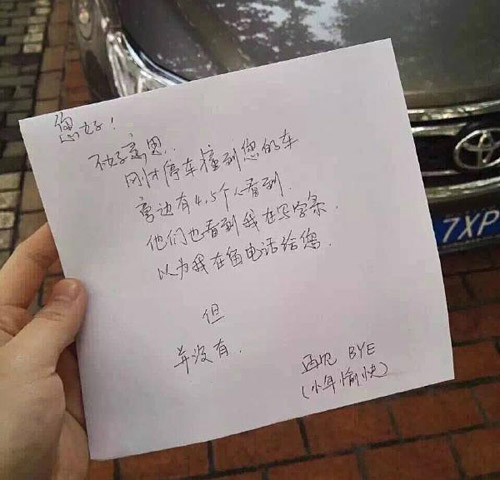 您好!
不好意思..
刚才停车撞到您的车
旁边有4.5个人看到.
他们也看到我在写字条.
以为我在留电话给您.
但
并没有.
再见 BYE
(小年愉快)
7XP